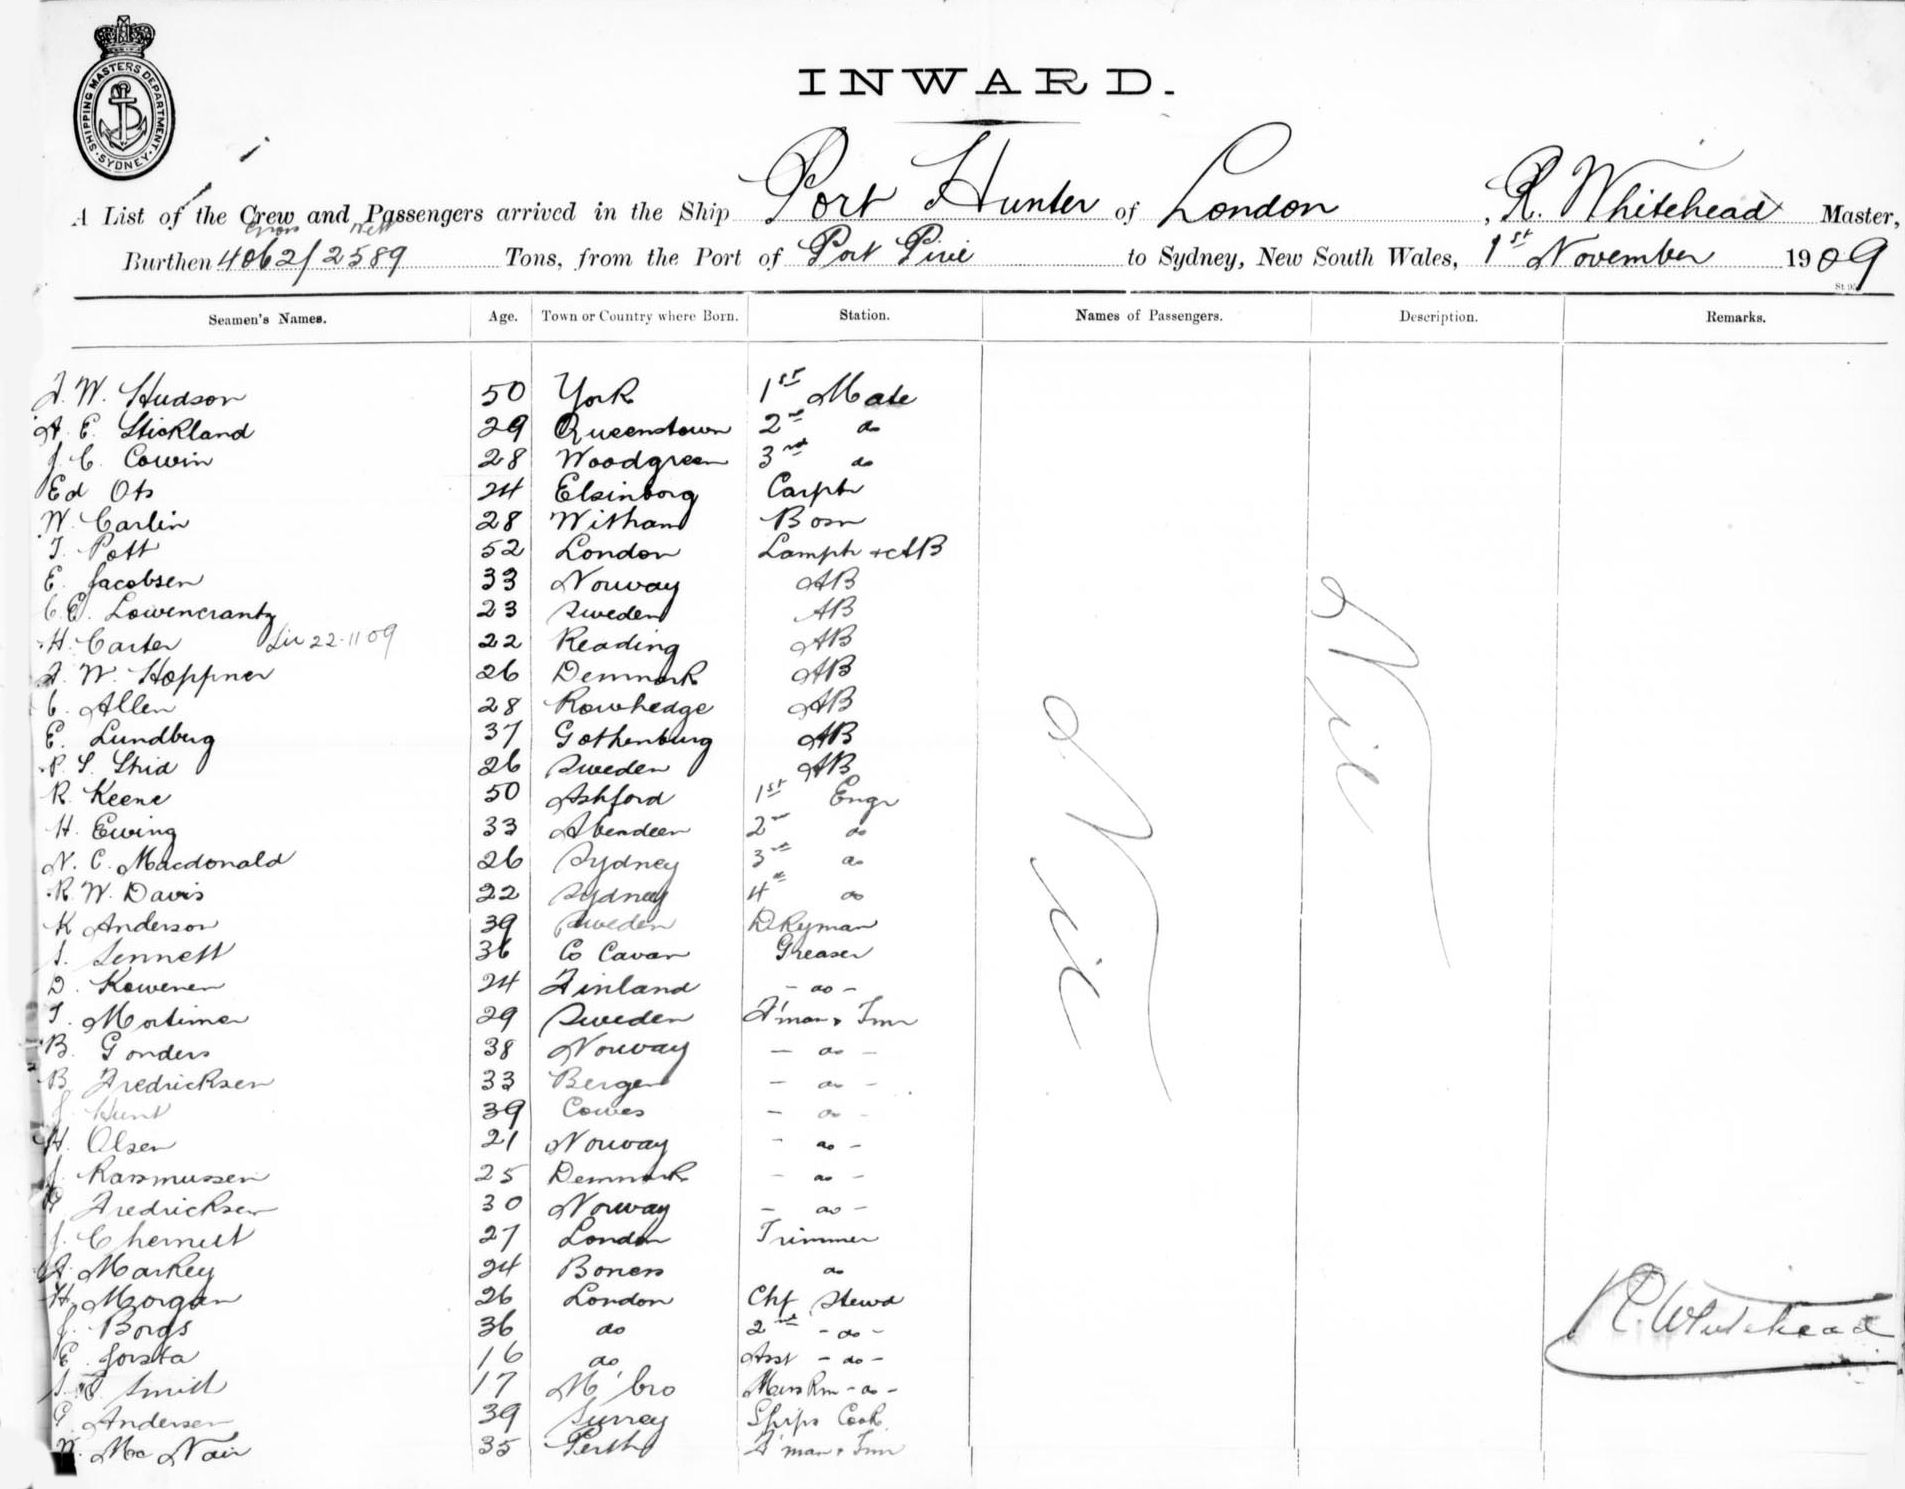 SHIPPING MASTERS DEPARTMENT. SYDNEY
INWARD.
A List of the Crew and Passengers arrived in the Ship Port Hunter of London, R. Whitehead Master,
Gross Nett
Burthen 4062/2589 Tons, from the Port of Port Pirie to Sydney, New South Wales, 1st November 1909
Seamen's Names. Age. Town or Country where Born. Station. Names of Passengers. Description. Remarks.
F. W. Hudson 50 York 1st Mate
A. E. Stickland 29 Queenstown 2nd do
J. C. Cowin 28 Woodgreen 3rd do
Ed Ots 24 Elsinborg Carptr
W. Carlin 28 Witham Bosn
T. Pott 52 London Lamptr & AB
E. Jacobsen 33 Norway AB
C. E. Lowencrantz 23 Sweden AB
H. Carter 22-11-09 22 Reading AB
F. W. Hoppner 26 Denmark AB
C. Allen 28 Rowhedge AB
E. Lundberg 37 Gothenburg AB
P. S. Strid 26 Sweden AB
R. Keene 50 Ashford 1st Engr
H. Ewing 33 Aberdeen 2nd do
N. C. Macdonald 26 Sydney 3rd do
R. W. Davis 22 Sydney 4th do
K Anderson 39 Sweden Dkyman
Sennett 36 Co Cavan Greaser
D. Kowenen 24 Finland - do -
T. Mortimer 29 Sweden F'man & Tmr
B. Gonders 38 Norway - do -
B Fredricksen 33 Bergen - do -
J. Hunt 39 Cowes - do -
H. Olsen 21 Norway - do -
J. Rasmussen 25 Denmark - do -
Fredricksen 30 Norway - do -
J. Chernett 27 London Trimmer
Markey 24 do
H. Morgan 26 London Chf Stewd
J. Borgs 36 do 2nd - do -
E. Jorsta 16 do Asst - do -
Smith 17 M'bro Mess Rm - do -
Andersen 39 Surrey Ships Cook
Mc Nair 35 Perth F'man & Tmr
Nil
Nil
R. Whitehead